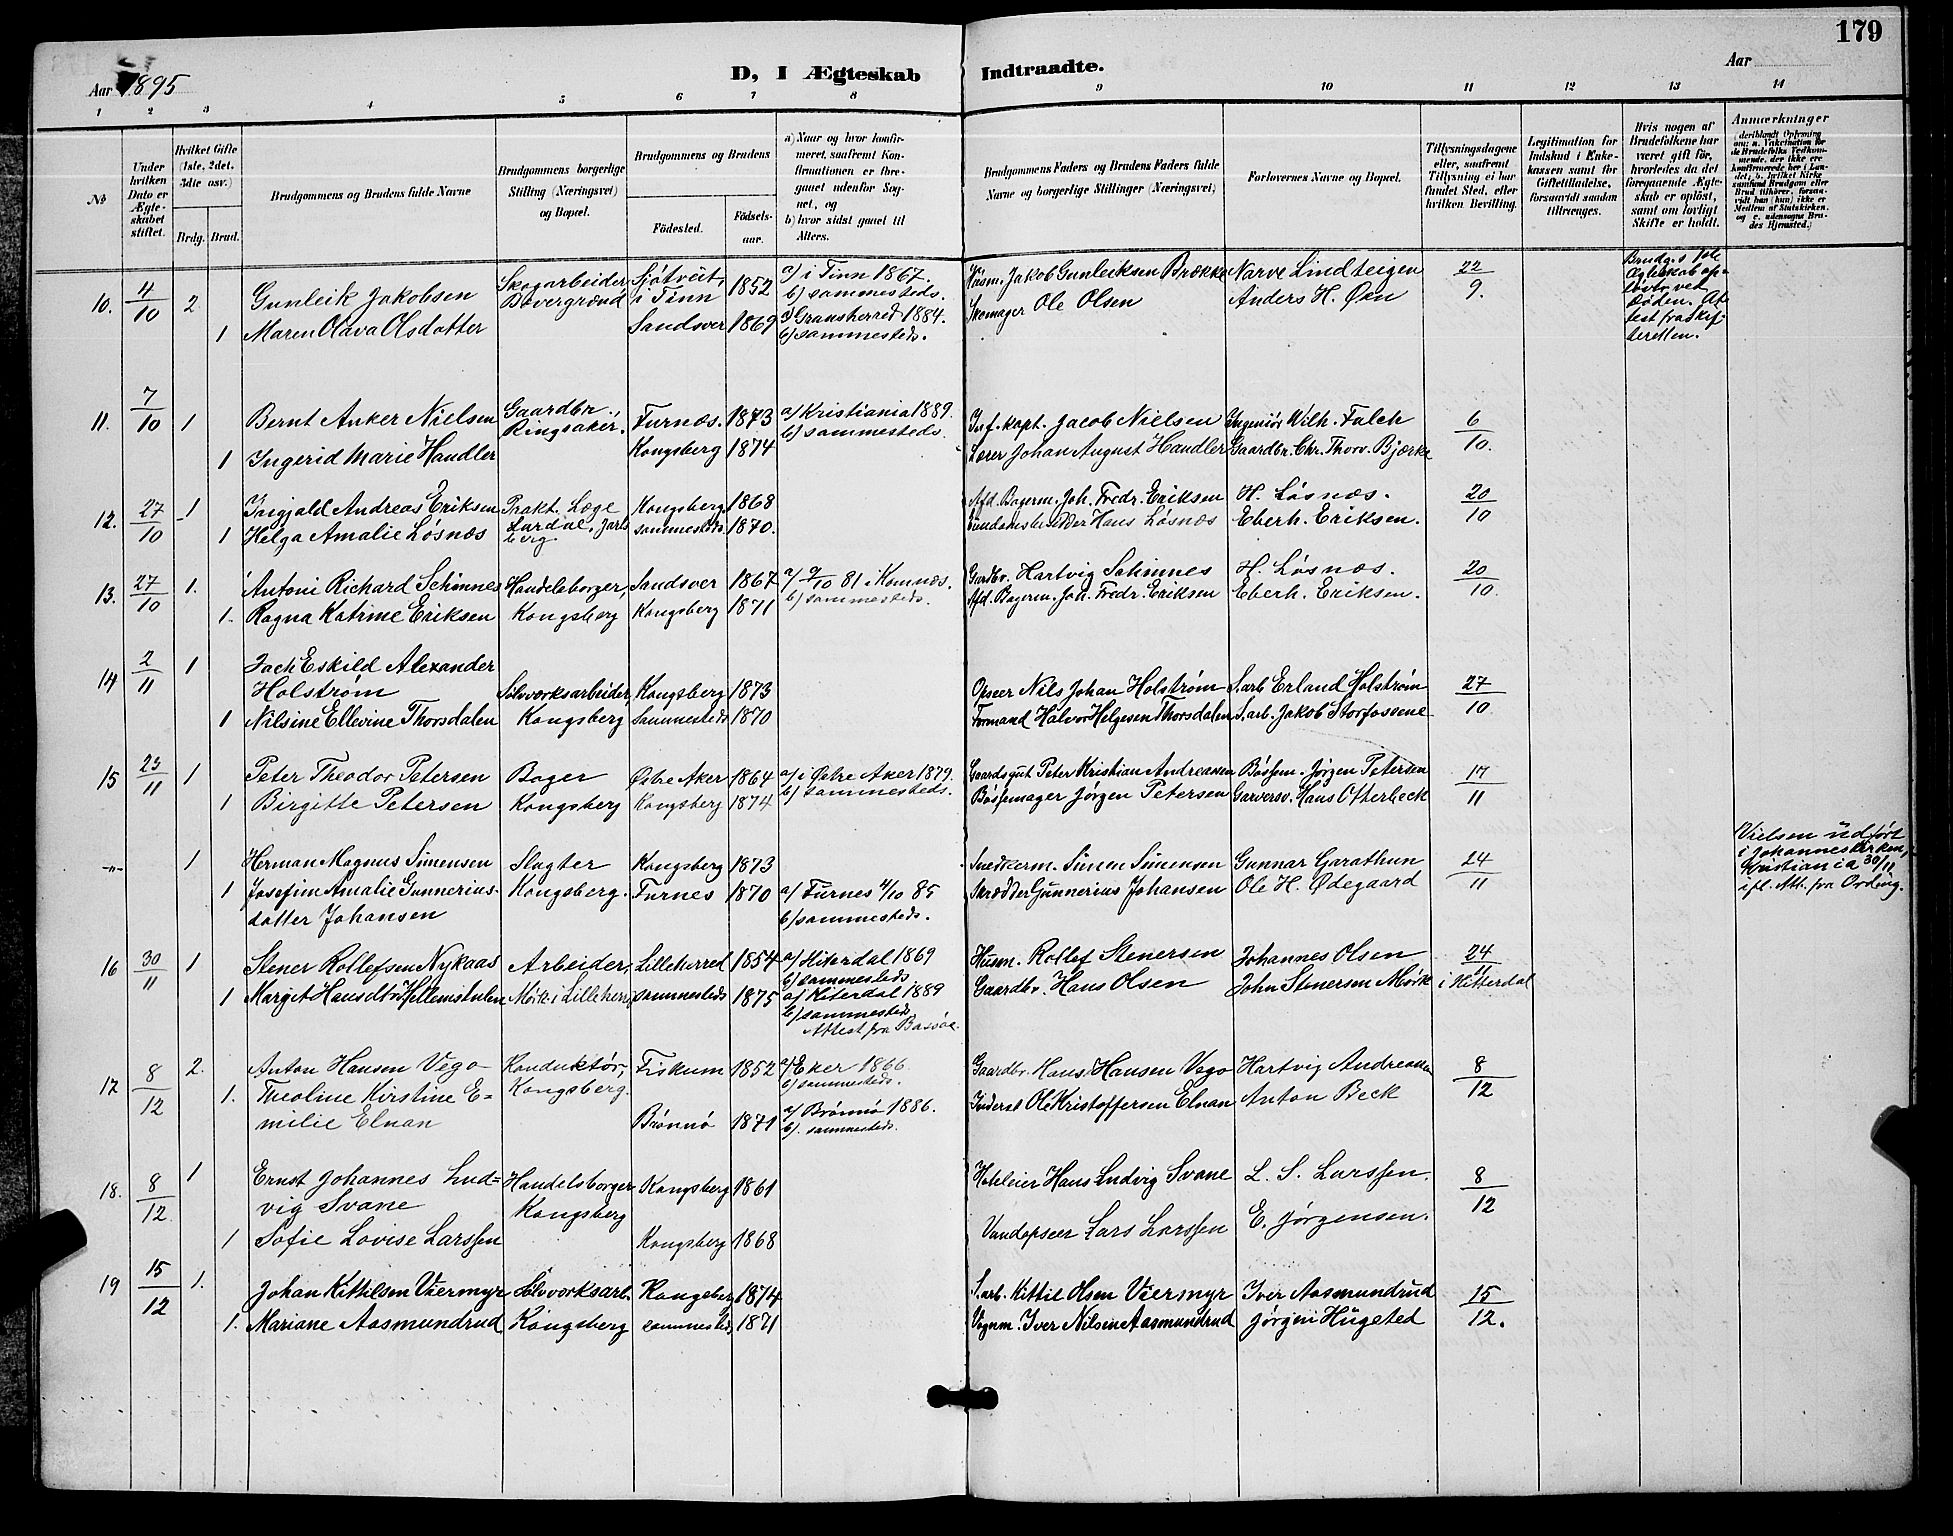 179
Aar 1895
D, I Ægteskab Indtraadte.
Aar
1 2 3 4 5 6 7 8 9 10 11 12 13 14
No
Under hvilken Dato er Ægteskabet stiftet.
Hvilket Gifte (1ste, 2det, 3die osv.)
Brdg. Brud.
Brudgommens og Brudens fulde Navne
Brudgommens borgerlige Stilling (Næringsvei) og Bopæl.
Brudgommens og Brudens
Födested.
Födselsaar.
a) Naar og hvor konfirmeret, saafremt Konfirmationen er foregaaet udenfor Sognet, og
b) hvor sidst gaaet til Alters.
Brudgommens Faders og Brudens Faders fulde Navne og borgerlige Stillinger (Næringsvei)
Forlovernes Navne og Bopæl.
Tillysningsdagene eller, saafremt Tillysning ei har fundet Sted, efter hvilken Bevilling.
Legitimation for Indskud i Enkekassen samt for Giftetilladelse, forsaavidt saadan tiltrænges.
Hvis nogen af Brudefolkene har været gift för, hvorledes da det foregaaende Ægteskab er oplöst, samt om lovligt Skifte er holdt.
Anmærkninger
10. 4/10 2 Gunleik Jakobsen Skogarbeider Sjøtveit, i Tinn 1852 a) i Tinn 1867. b) sammesteds. Husm. Jakob Gunleiksen Brække Narve Lindteigen 22/9.
Bævergrænd
1 Maren Olava Olsdatter Sandsver 1869 a) Gransherred 1884. b) sammesteds. Skomager Ole Olsen Anders H. Øen
Brudg.s 1ste Ægteskab opløst ved Døden. Attest fra Skifteretten.
11. 7/10 1 Bernt Anker Nielsen Gaardbr. Ringsaker. Furnæs. 1873 a) Kristiania 1889. b) sammesteds. Inf. kapt. Jacob Nielsen Ingeniør Wilh. Falch 6/10.
1 Ingerid Marie Handler Kongsberg 1874 Lærer Johan August Handler Gaardbr. Chr. Thorv. Bjerke
12. 27/10 1 Ingjald Andreas Eriksen Prakt. Læge Kongsberg 1868 Afd. Bagerm. Joh. Fredr. Eriksen H. Løsnæs. 20/10
1 Helga Amalie Løsnæs Lardal, Jarlsberg sammesteds 1870. Hans Løsnæs Eberh. Eriksen.
13. 27/10 1. Antoni Richard Schinnes Handelsborger, Sandsver 1867 a) 9/10 81 i Komnæs. b) sammesteds. Gardbr. Hartvig Schinnes H. Løsnæs. 20/10.
1. Ragna Katrine Eriksen Kongsberg Kongsberg 1871 Afd. Bagerm. Joh. Fredr. Eriksen Eberh. Eriksen.
14 2/11 1 Jach Eskild Alexander Holstrøm Sølvværksarbeider, Kongsberg 1873 Opseer Nils Johan Holstrøm S.arb Erland Holstrøm 27/10.
1 Nilsine Ellevine Thorsdalen Kongsberg Sammesteds 1870 Formand Halvor Helgesen Thorsdalen S.arb. Jakob Storfossene
15 23/11 1 Peter Theodor Petersen Bager Østre Aker 1864 a) i Østre Aker 1879. b) sammesteds. Gaardsgut Peter Kristian Andreassen Bøssem. Jørgen Petersen 17/11
1 Birgitte Petersen Kongsberg Kongsberg 1874 Bøssemager Jørgen Petersen Garversv. Hans Otterbeck
-"- 1 Herman Magnus Simensen Slagter Kongsberg 1873 Snedkerm. Simen Simensen Gunnar Garathun 24/11
1 Josefine Amalie Gunneriusdatter Johansen Kongsberg. Furnes 1870 a) Furnes 4/10 85 b) sammesteds. Skrædder Gunnerius Johansen Ole H. Ødegaard
Vielsen udført i Johanneskirken, Kristiania 30/11 ifl. Att. fra Ording.
16 30/11 1 Stener Rollefsen Nykaas Arbeider, Lilleherred 1854 a) Hiterdal 1869 b) sammesteds Husm. Rollef Stenersen Johannes Olsen 24/11
1 Margit Hansdtr. Hellemshulen Mørk i Lilleherr. sammesteds 1875 a) Hiterdal 1889 b) sammesteds Attest fra Bassøe. Gaardbr. Hans Olsen John Stenersen Mørk i Hitterdal
17 8/12 2. Anton Hansen Vego Konduktør, Kongsberg. Fiskum 1852 a) Eker 1866. b) sammesteds. Gaardbr. Hans Hansen Vego Hartvig Andreassen 8/12
1. Theoline Kirstine Emilie Elnan Brønnø 1871 a) Brønnø 1886. b). sammesteds. Inderst Ole Kristoffersen Elnan Anton Beck
18. 8/12 1 Ernst Johannes Ludvig Svane Handelsborger Kongsberg Kongsberg 1861 Hoteleier Hans Ludvig Svane L. S. Larssen. 8/12
1 Sofie Lovise Larssen Kongsberg 1868 Vandopseer Lars Larssen E. Jørgensen.
19 15/12 1. Johan Kittilsen Viermyr Sølvværksarb. Kongsberg 1874 S.arb. Kittil Olsen Viermyr Iver Aasmundrud 15/12.
1. Mariane Aasmundrud Kongsberg sammesteds 1871 Vognm. Iver Nilsen Aasmundrud Jørgen Hugsted